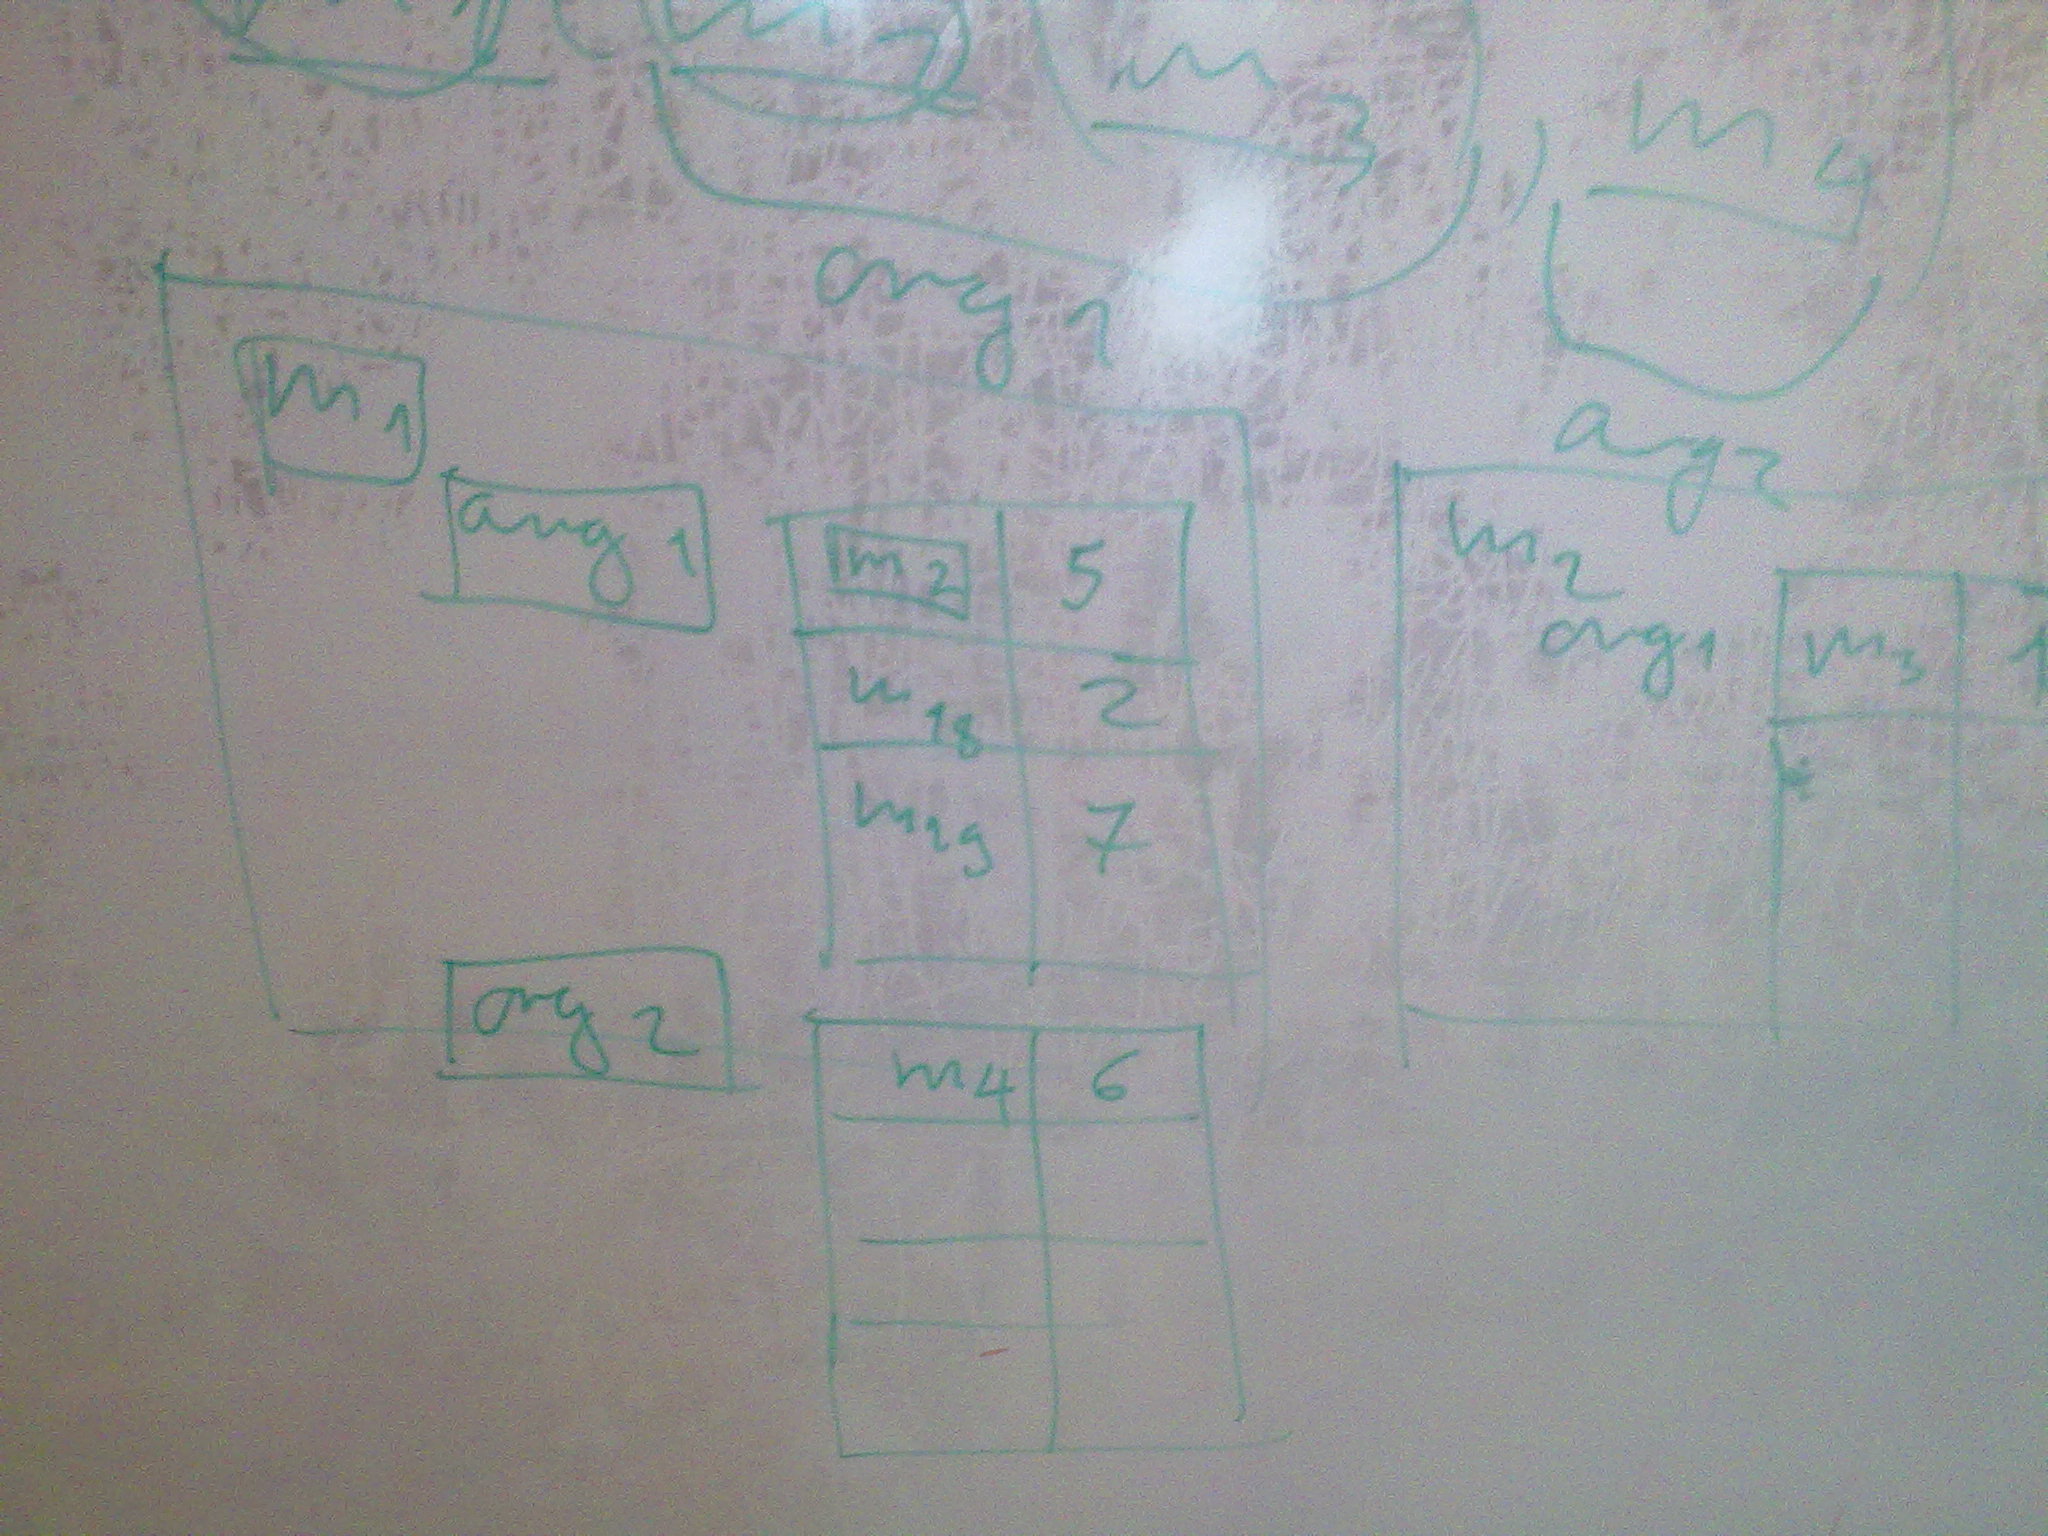 m 2 m 3 ) m 4
arg 1
arg 2
m 1
arg 1
m 2 5
m 18 2
m 19 7
arg 2
m 4 6
m 2
arg 1
m 3 1